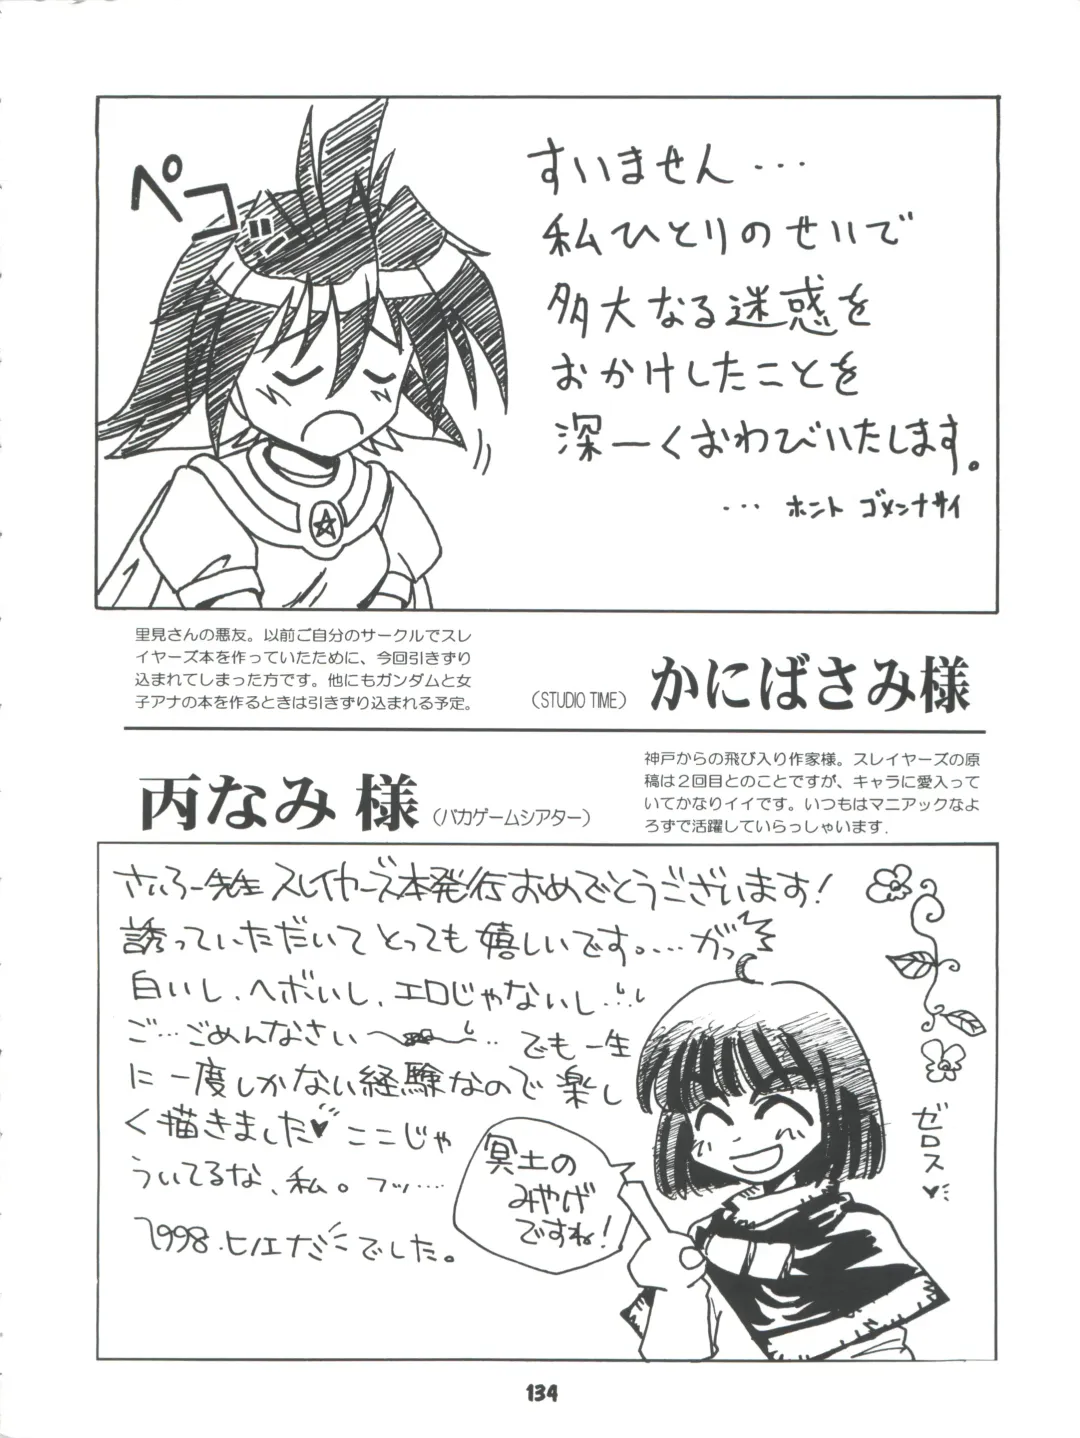 ペコ
すいません・・・
私ひとりのせいで
多大なる迷惑を
おかけしたことを
深ーくおわびいたします。
・・・ ホント ゴメンナサイ
里見さんの悪友。以前ご自分のサークルでスレ
イヤーズ本を作っていたために、今回引きずり
込まれてしまった方です。他にもガンダムと女
子アナの本を作るときは引きずり込まれる予定。
(STUDIO TIME) かにばさみ様
丙なみ様 (バカゲームシアター)
神戸からの飛び入り作家様。スレイヤーズの原
稿は２回目とのことですが、キャラに愛入って
いてかなりイイです。いつもはマニアックなよ
ろずで活躍していらっしゃいます.
さいろー先生 スレイヤーズ本発行おめでとうございます！
誘っていただいて とっても嬉しいです。・・・・ガッ
白いし、ヘボいし、エロじゃないし・・・
ご…ごめんなさい〜 ・・でも一生
に一度しかない経験なので楽し
く描きました♥ ここじゃ
ういてるな、私。フッ・・・・
1998. ヒノエナミでした。
冥土の
みやげ
ですね！
ゼロス
♥
134